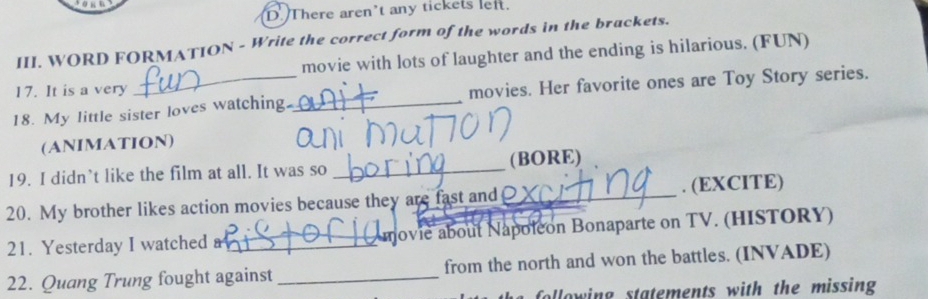 D. There aren't any tickets left.
III. WORD FORMATION - Write the correct form of the words in the brackets.
17. It is a very fun movie with lots of laughter and the ending is hilarious. (FUN)
18. My little sister loves watching anit movies. Her favorite ones are Toy Story series.
(ANIMATION) animation
19. I didn't like the film at all. It was so boring (BORE)
20. My brother likes action movies because they are fast and exciting. (EXCITE)
historical
21. Yesterday I watched a movie about Napoleon Bonaparte on TV. (HISTORY)
22. Quang Trung fought against ____ from the north and won the battles. (INVADE)
following statements with the missing